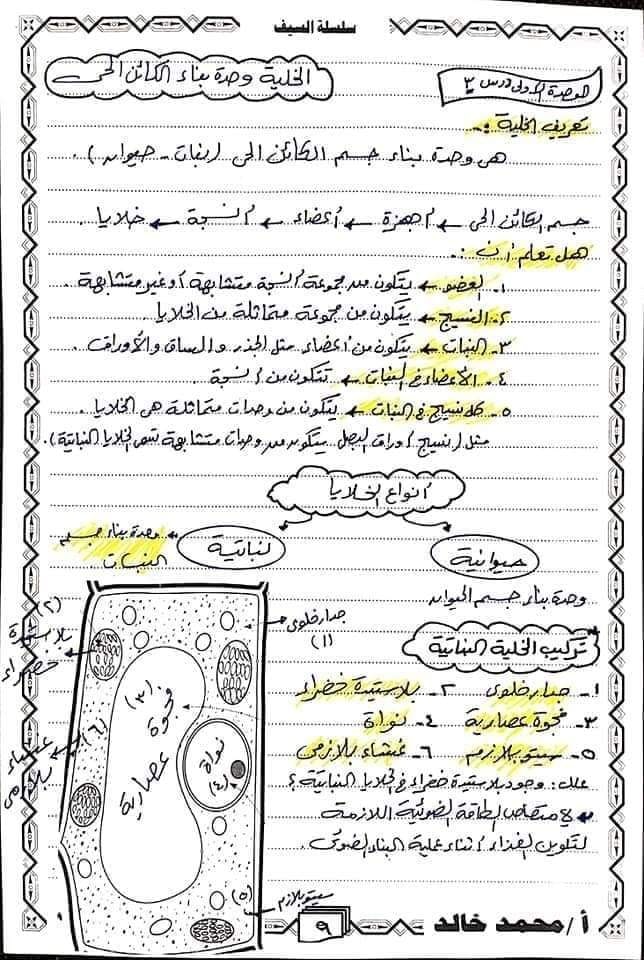 سلسلة السيف
الوحدة الأولى درس ٣
الخلية وحدة بناء الكائن الحى
تعريف الخلية :-
هى وحدة بناء جسم الكائن الحى (نبات - حيوان) .
جسم الكائن الحى ← أجهزة ← أعضاء ← أنسجة ← خلايا .
هل تعلم أن :
١- العضو ← يتكون من مجموعة أنسجة متشابهة أو غير متشابهة .
٢- النسيج ← يتكون من مجموعة متماثلة من الخلايا .
٣- النبات ← يتكون من أعضاء مثل الجذر والساق والأوراق .
٤- الأعضاء فى النبات ← تتكون من أنسجة .
٥- كل نسيج فى النبات ← يتكون من وحدات متماثلة هى الخلايا .
مثل (نسيج أوراق البصل يتكون من وحدات متشابهة تسمى الخلايا النباتية) .
أنواع الخلايا
حيوانية
وحدة بناء جسم الحيوان
نباتية
وحدة بناء جسم
النبات
تركيب الخلية النباتية
١- جدار خلوى ٢- بلاستيدة خضراء
٣- فجوة عصارية ٤- نواة
٥- سيتوبلازم ٦- غشاء بلازمى
علل : وجود بلاستيدة خضراء فى الخلايا النباتية ؟
← لامتصاص الطاقة الضوئية اللازمة
لتكوين الغذاء أثناء عملية البناء الضوئى .
جدار خلوى
(١)
(٢)
بلاستيدة
خضراء
(٣)
فجوة عصارية
نواة
(٤)
(٥)
سيتوبلازم
(٦)
غشاء
بلازمى
٩
أ/محمد خالد